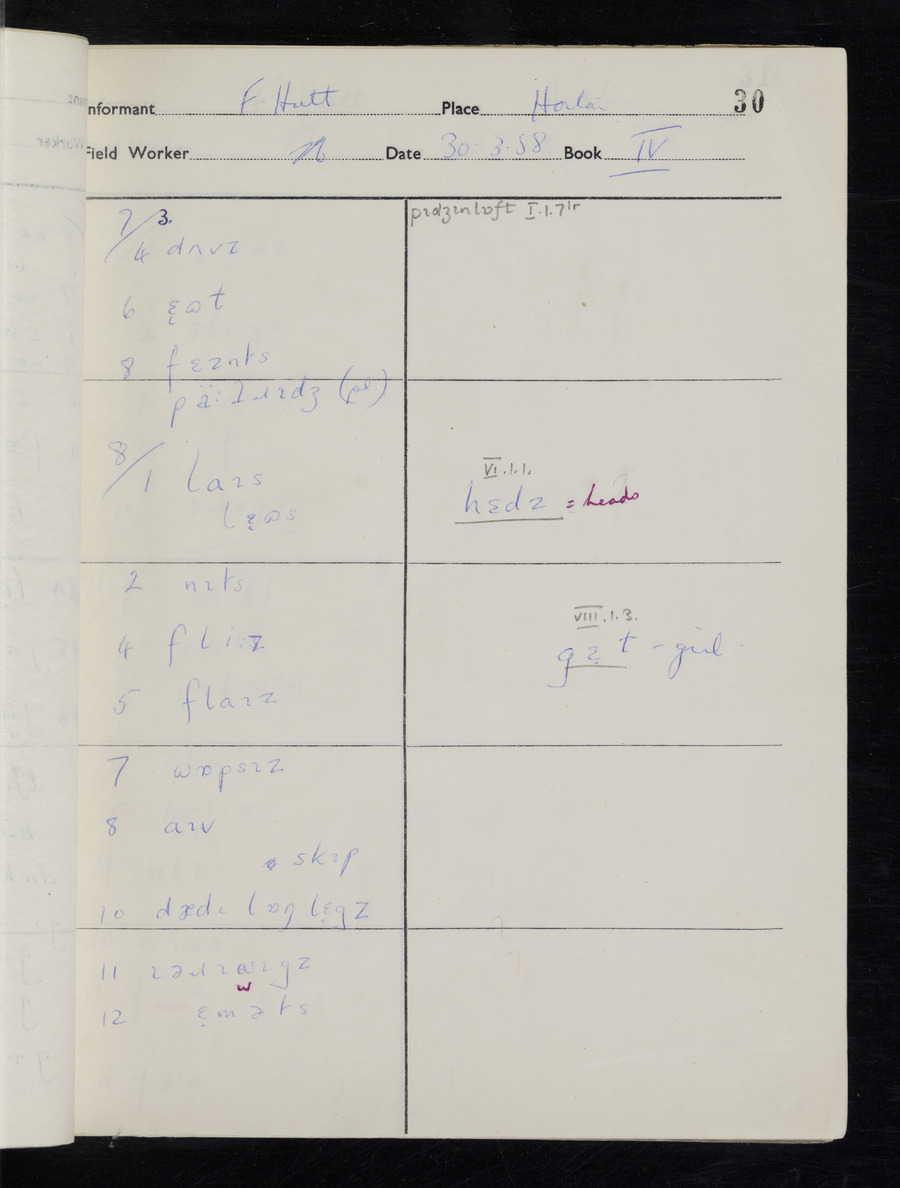 Informant F. Hutt Place 30
Field Worker Date 30.3.58 Book IV
7/3.
4 dʌvz
6 ɛ̝ɷt
8 fɛɪnʔs
(pl.)
8/1 laɪs
lɛ̝ɷs
2 nɪʔs
4 fli:z
5 flaɪz
7 wɒpsɪz
8 aɪv
skɪp
10 dædɪ lɒŋ lɛ̝gz
11
12 ɛ̝məʔs
pɪdʒɪnlɒft I.1.7
VI.1.1.
hɛdz = heads
VIII.1.3.
- girl